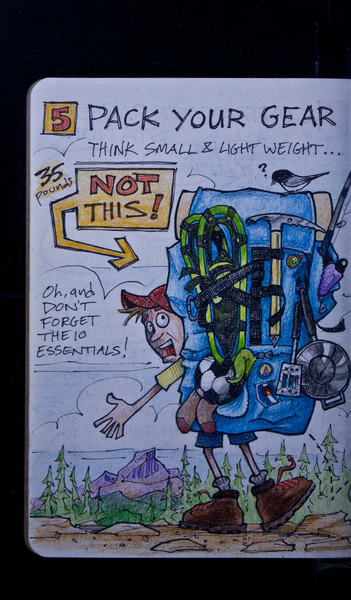 5 PACK YOUR GEAR
THINK SMALL & LIGHT WEIGHT...
35
pounds
NOT
THIS!
?
Oh, and
DON'T
FORGET
THE 10
ESSENTIALS!